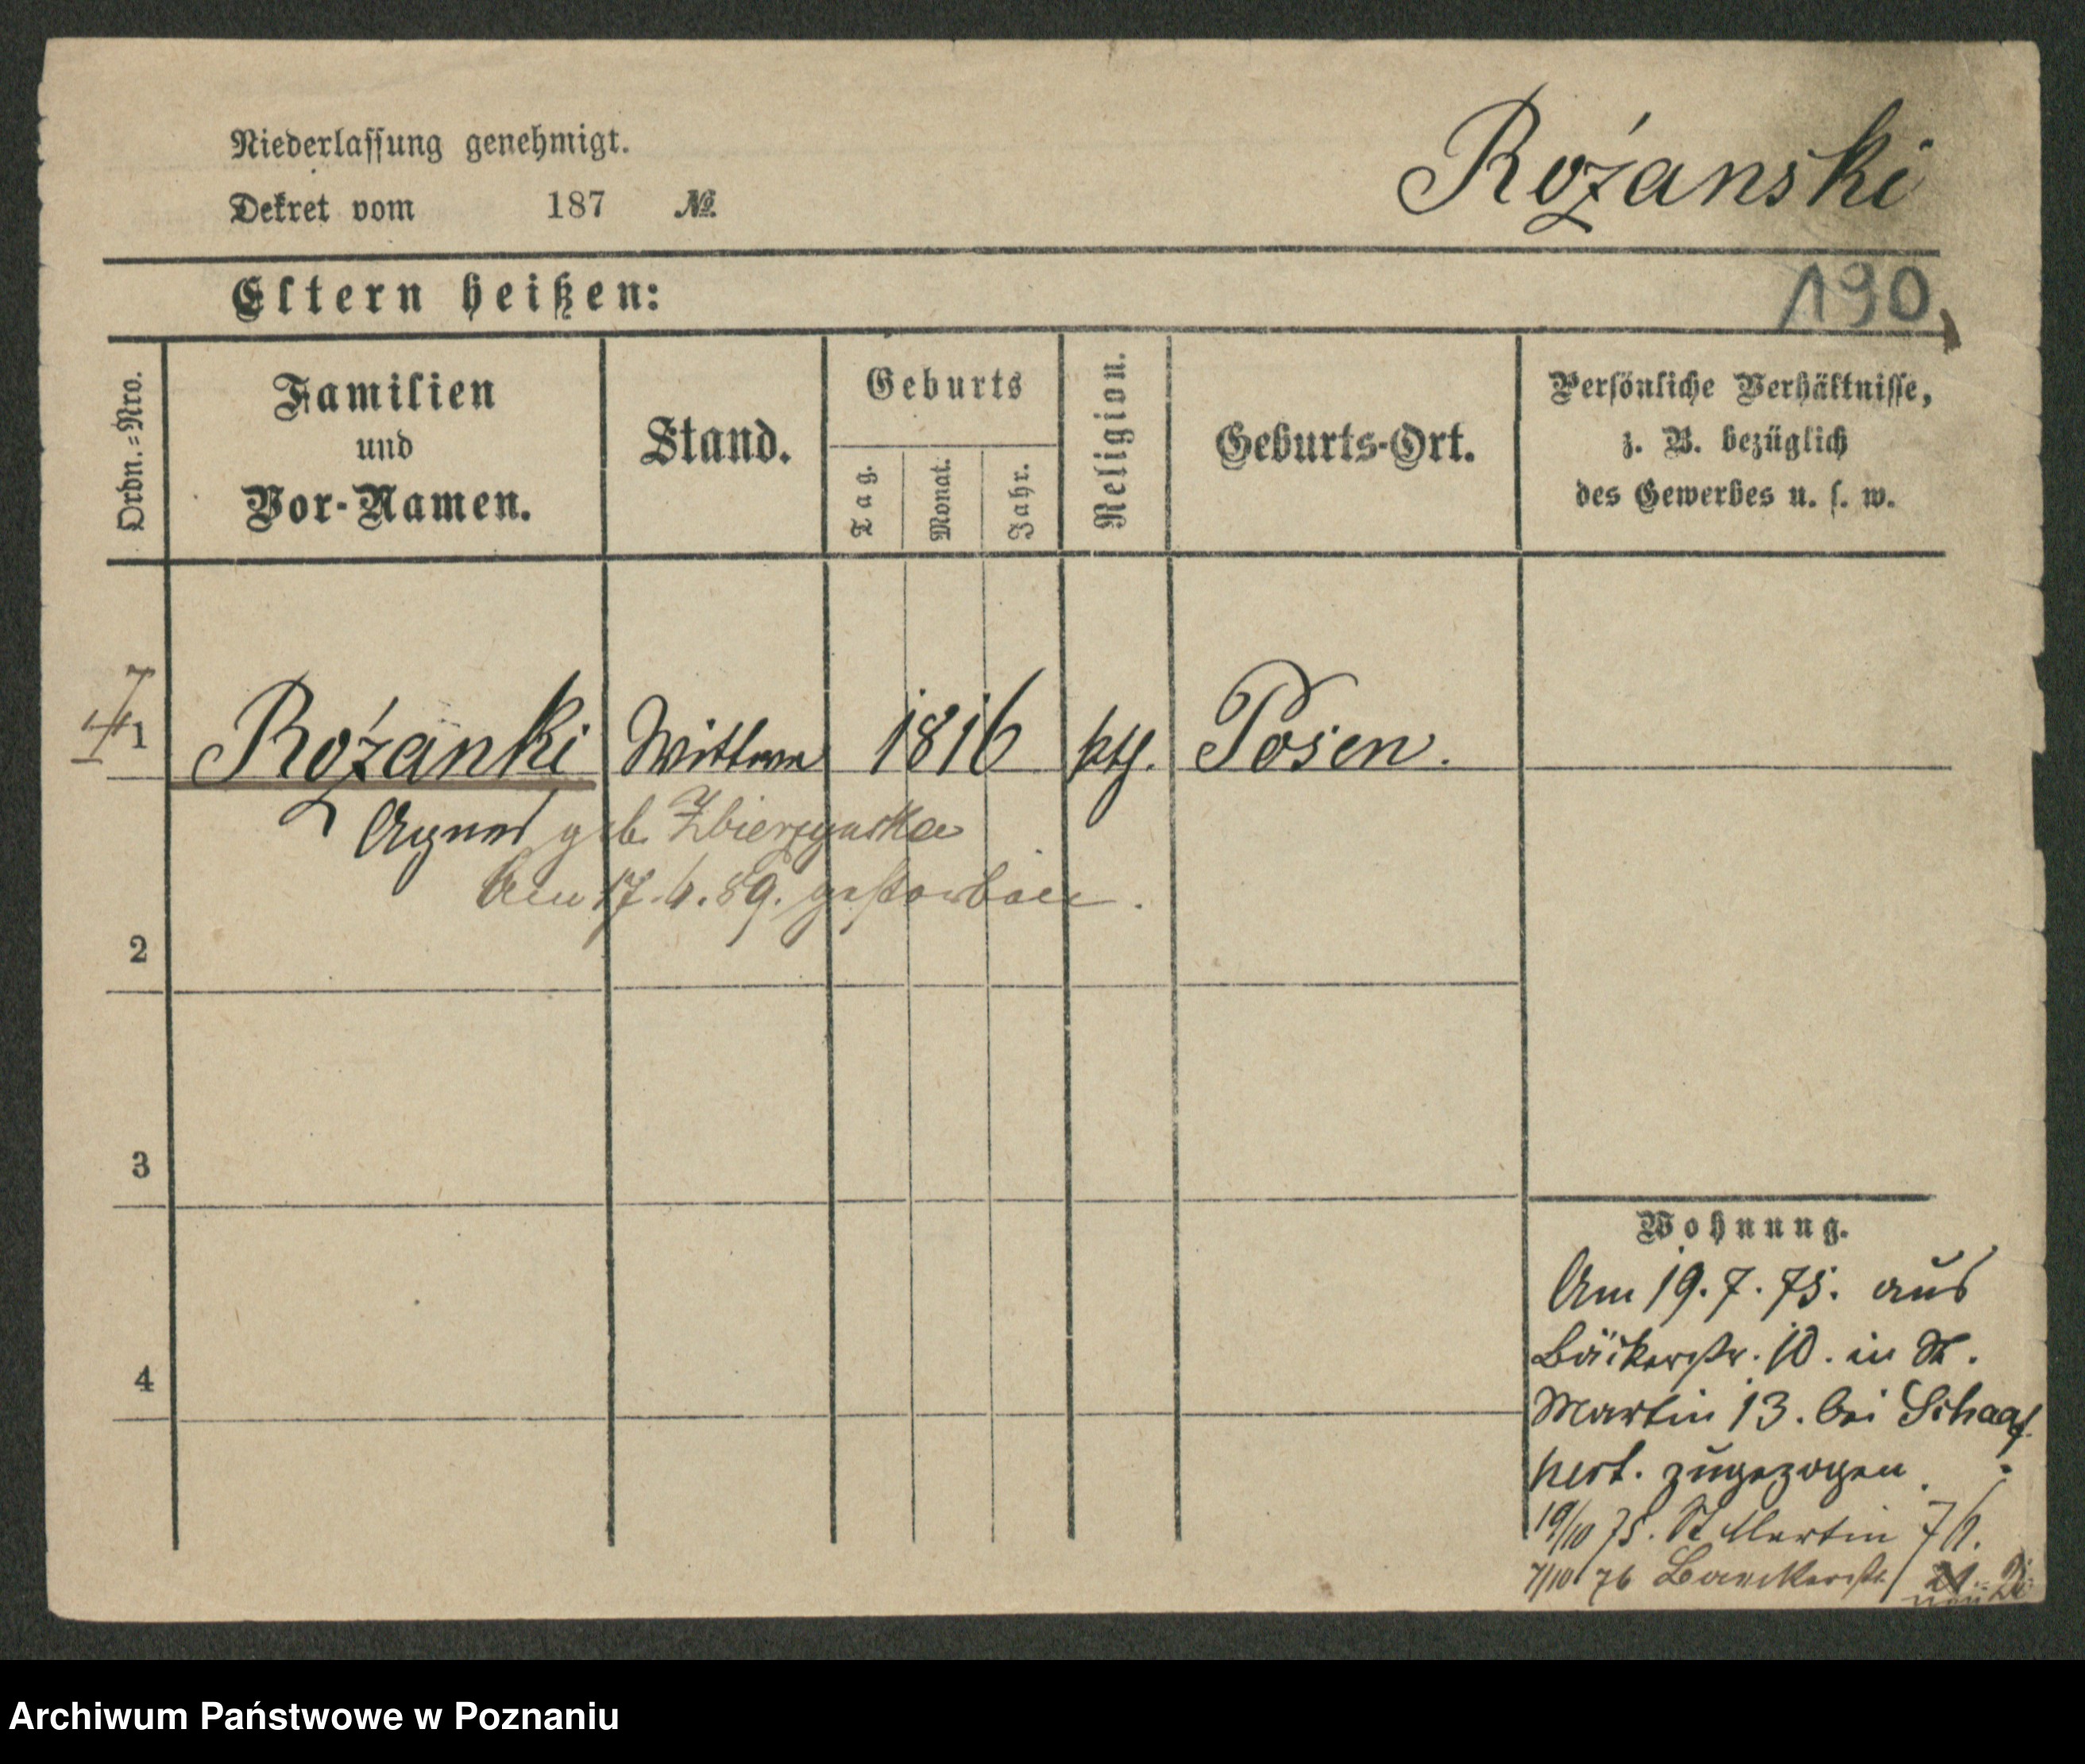 Niederlassung genehmigt.
Dekret vom 187 №.
Rożanski
Eltern heißen:
190
Ordn.=Nro.
Familien
und
Vor-Namen.
Stand.
Geburts
Tag.
Monat.
Jahr.
Religion.
Geburts-Ort.
Persönliche Verhältnisse,
z. B. bezüglich
des Gewerbes u. s. w.
1 Rożanki Wittwe 1816 kth. Posen.
Agnes geb. Zbierzynska
Am 17.6.89. gestorben.
2
3
4
Wohnung.
Am 19.7.75. aus
Bäckerstr. 10. in St.
Martin 13. bei Schaaf
part. zugezogen.
19/10 75. St Martin
7/10 76 Baeckerstr.
Archiwum Państwowe w Poznaniu